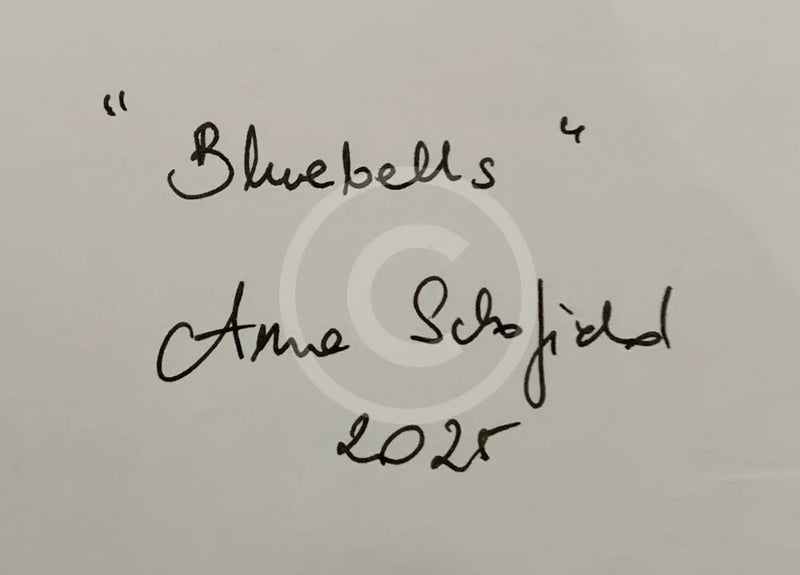 "Bluebells"
Anne Schofield
2025